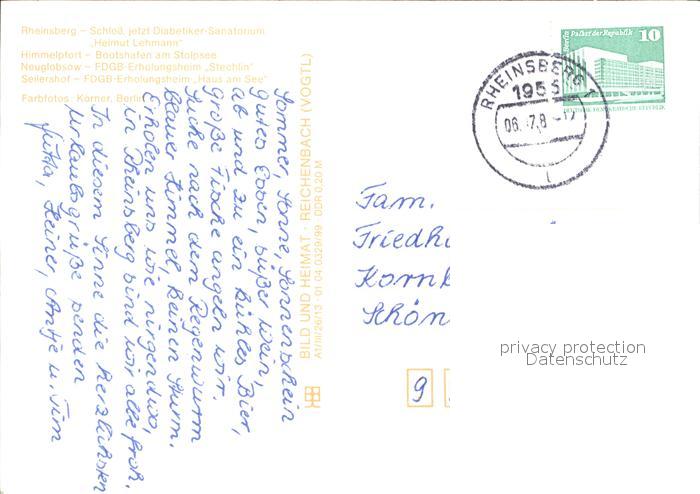 Rheinsberg – Schloß, jetzt Diabetiker-Sanatorium
„Helmut Lehmann"
Himmelpfort – Bootshafen am Stolpsee
Neuglobsow – FDGB-Erholungsheim „Stechlin"
Seilershof – FDGB-Erholungsheim „Haus am See"
Farbfotos: Körner, Berlin
Sommer, Sonne, Sonnenschein
gutes Essen, süßer Wein,
ab und zu ein kühles Bier,
große Fische angeln wir.
Suche nach dem Regenwurm
blauer Himmel, keinen Sturm.
Erholen uns wie nirgendwo,
in Rheinsberg sind wir alle froh.
In diesem Sinne die herzlichsten
Urlaubsgrüße senden
Jutta, Heiner, Antje u. Tim
BILD UND HEIMAT · REICHENBACH (VOGTL)
A1/III/26/13 · 01 04 0329/99 DDR 0,20 M
Berlin Palast der Republik 10
RHEINSBERG 1
1955
06. -7.8
Fam.
Friedh
Korn
Schön
9
privacy protection
Datenschutz